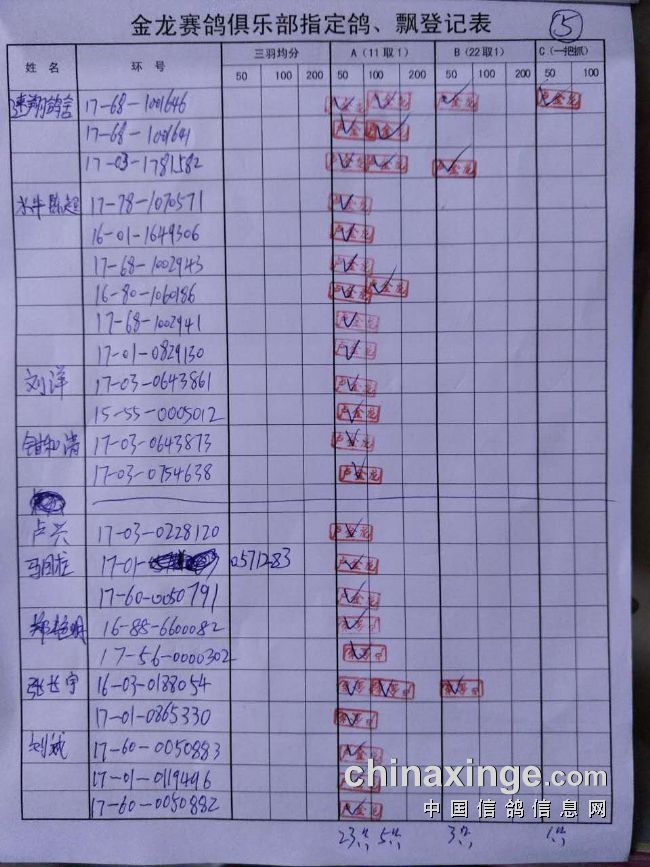 金龙赛鸽俱乐部指定鸽、飘登记表
5
姓 名 环 号 三羽均分 A（11取1） B（22取1） C（一把抓）
50 100 200 50 100 200 50 100 200 50 100
翔鸽舍 17-68-1001646
17-68-1001641
17-03-1781582
水牛陈超 17-78-1070571
16-01-1649306
17-68-1002943
16-80-1060186
17-68-1002941
17-01-0829130
刘洋 17-03-0643861
15-55-0005012
和清 17-03-0643873
17-03-0754638
卢兴 17-03-0228120
马 17-01- 0571283
17-60-0050791
郑 明 16-88-6600082
17-56-0000302
张长宇 16-03-0188054
17-01-0865330
刘斌 17-60-0050883
17-01-0119496
17-60-0050882
23 5 3 1
卢金龙
chinaxinge.com
中国信鸽信息网